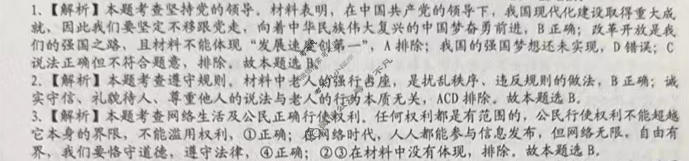 1、【解析】本题考查坚持党的领导。材料表明，在中国共产党的领导下，我国现代化建设取得重大成
就，因此我们要坚定不移跟党走，向着中华民族伟大复兴的中国梦奋勇前进，B正确；改革开放是我
们的强国之路，且材料不能体现“发展速度创第一”，A排除；我国的强国梦想还未实现，D错误；C
说法正确但不符合题意，排除。故本题选B。
2、【解析】本题考查遵守规则。材料中老人的强行占座，是扰乱秩序、违反规则的做法，B正确；诚
实守信、礼貌待人、尊重他人的说法与老人的行为本质无关，ACD排除。故本题选B。
3、【解析】本题考查网络生活及公民正确行使权利。任何权利都是有范围的，公民行使权利不能超越
它本身的界限，不能滥用权利，①正确；在网络时代，人人都能参与信息发布，但网络无限，自由有
界，我们要恪守道德，遵守法律，④正确；②③在材料中没有体现，排除。故本题选B。